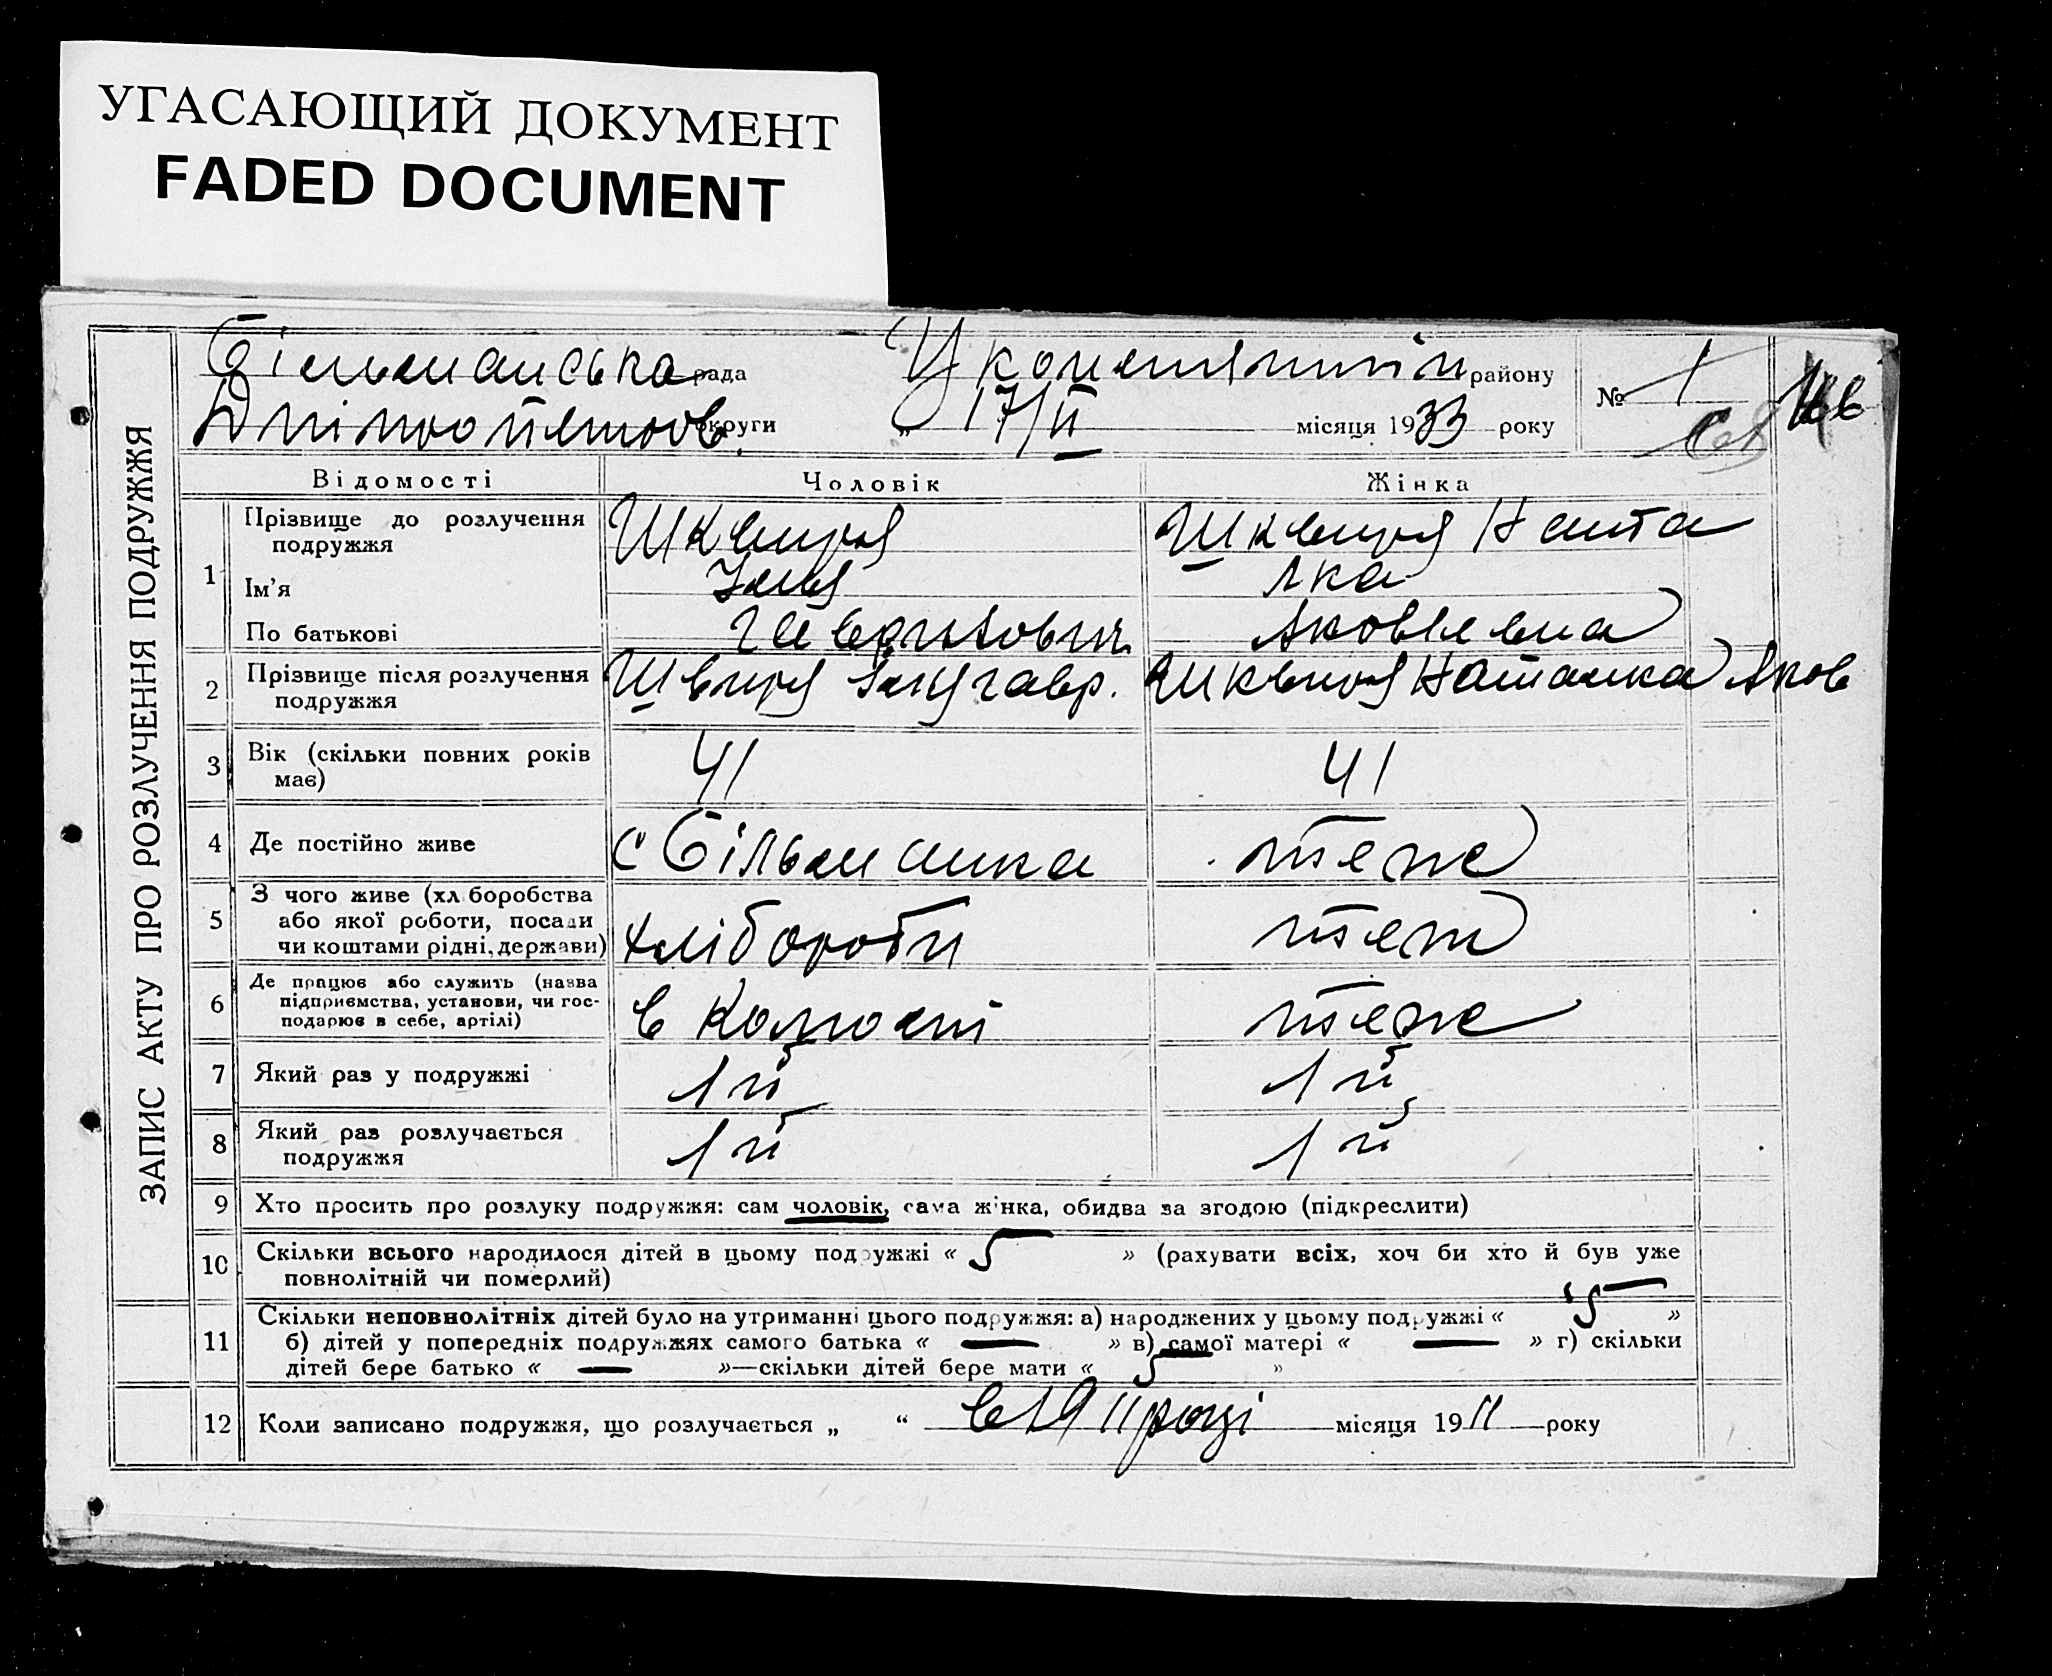 УГАСАЮЩИЙ ДОКУМЕНТ
FADED DOCUMENT
ЗАПИС АКТУ ПРО РОЗЛУЧЕННЯ ПОДРУЖЖЯ
Більманська рада району № 1
Дніпропетров. округи „ 17/II місяця 1933 року
Відомості Чоловік Жінка
1 Прізвище до розлучення подружжя Шквиря Шквиря Ната
Ім'я Ілья лка
По батькові Гаврилович Яковлевна
2 Прізвище після розлучення подружжя Шквиря Гавр. Шквиря Наталка Яков
3 Вік (скільки повних років має) 41 41
4 Де постійно живе с Більманка теж
5 З чого живе (хліборобства або якої роботи, посади чи коштами рідні, держави) хлібороби теж
6 Де працює або служить (назва підприємства, установи, чи господарює в себе, артілі) в теж
7 Який раз у подружжі 1й 1й
8 Який раз розлучається подружжя 1й 1й
9 Хто просить про розлуку подружжя: сам чоловік, сама жінка, обидва за згодою (підкреслити)
10 Скільки всього народилося дітей в цьому подружжі « 5 » (рахувати всіх, хоч би хто й був уже
повнолітній чи померлий)
11 Скільки неповнолітніх дітей було на утриманні цього подружжя: а) народжених у цьому подружжі « 5 »
б) дітей у попередніх подружжях самого батька « — » в) самої матері « — » г) скільки
дітей бере батько « — »—скільки дітей бере мати « 5 »
12 Коли записано подружжя, що розлучається „ “ в 1911 році місяця 1911 року